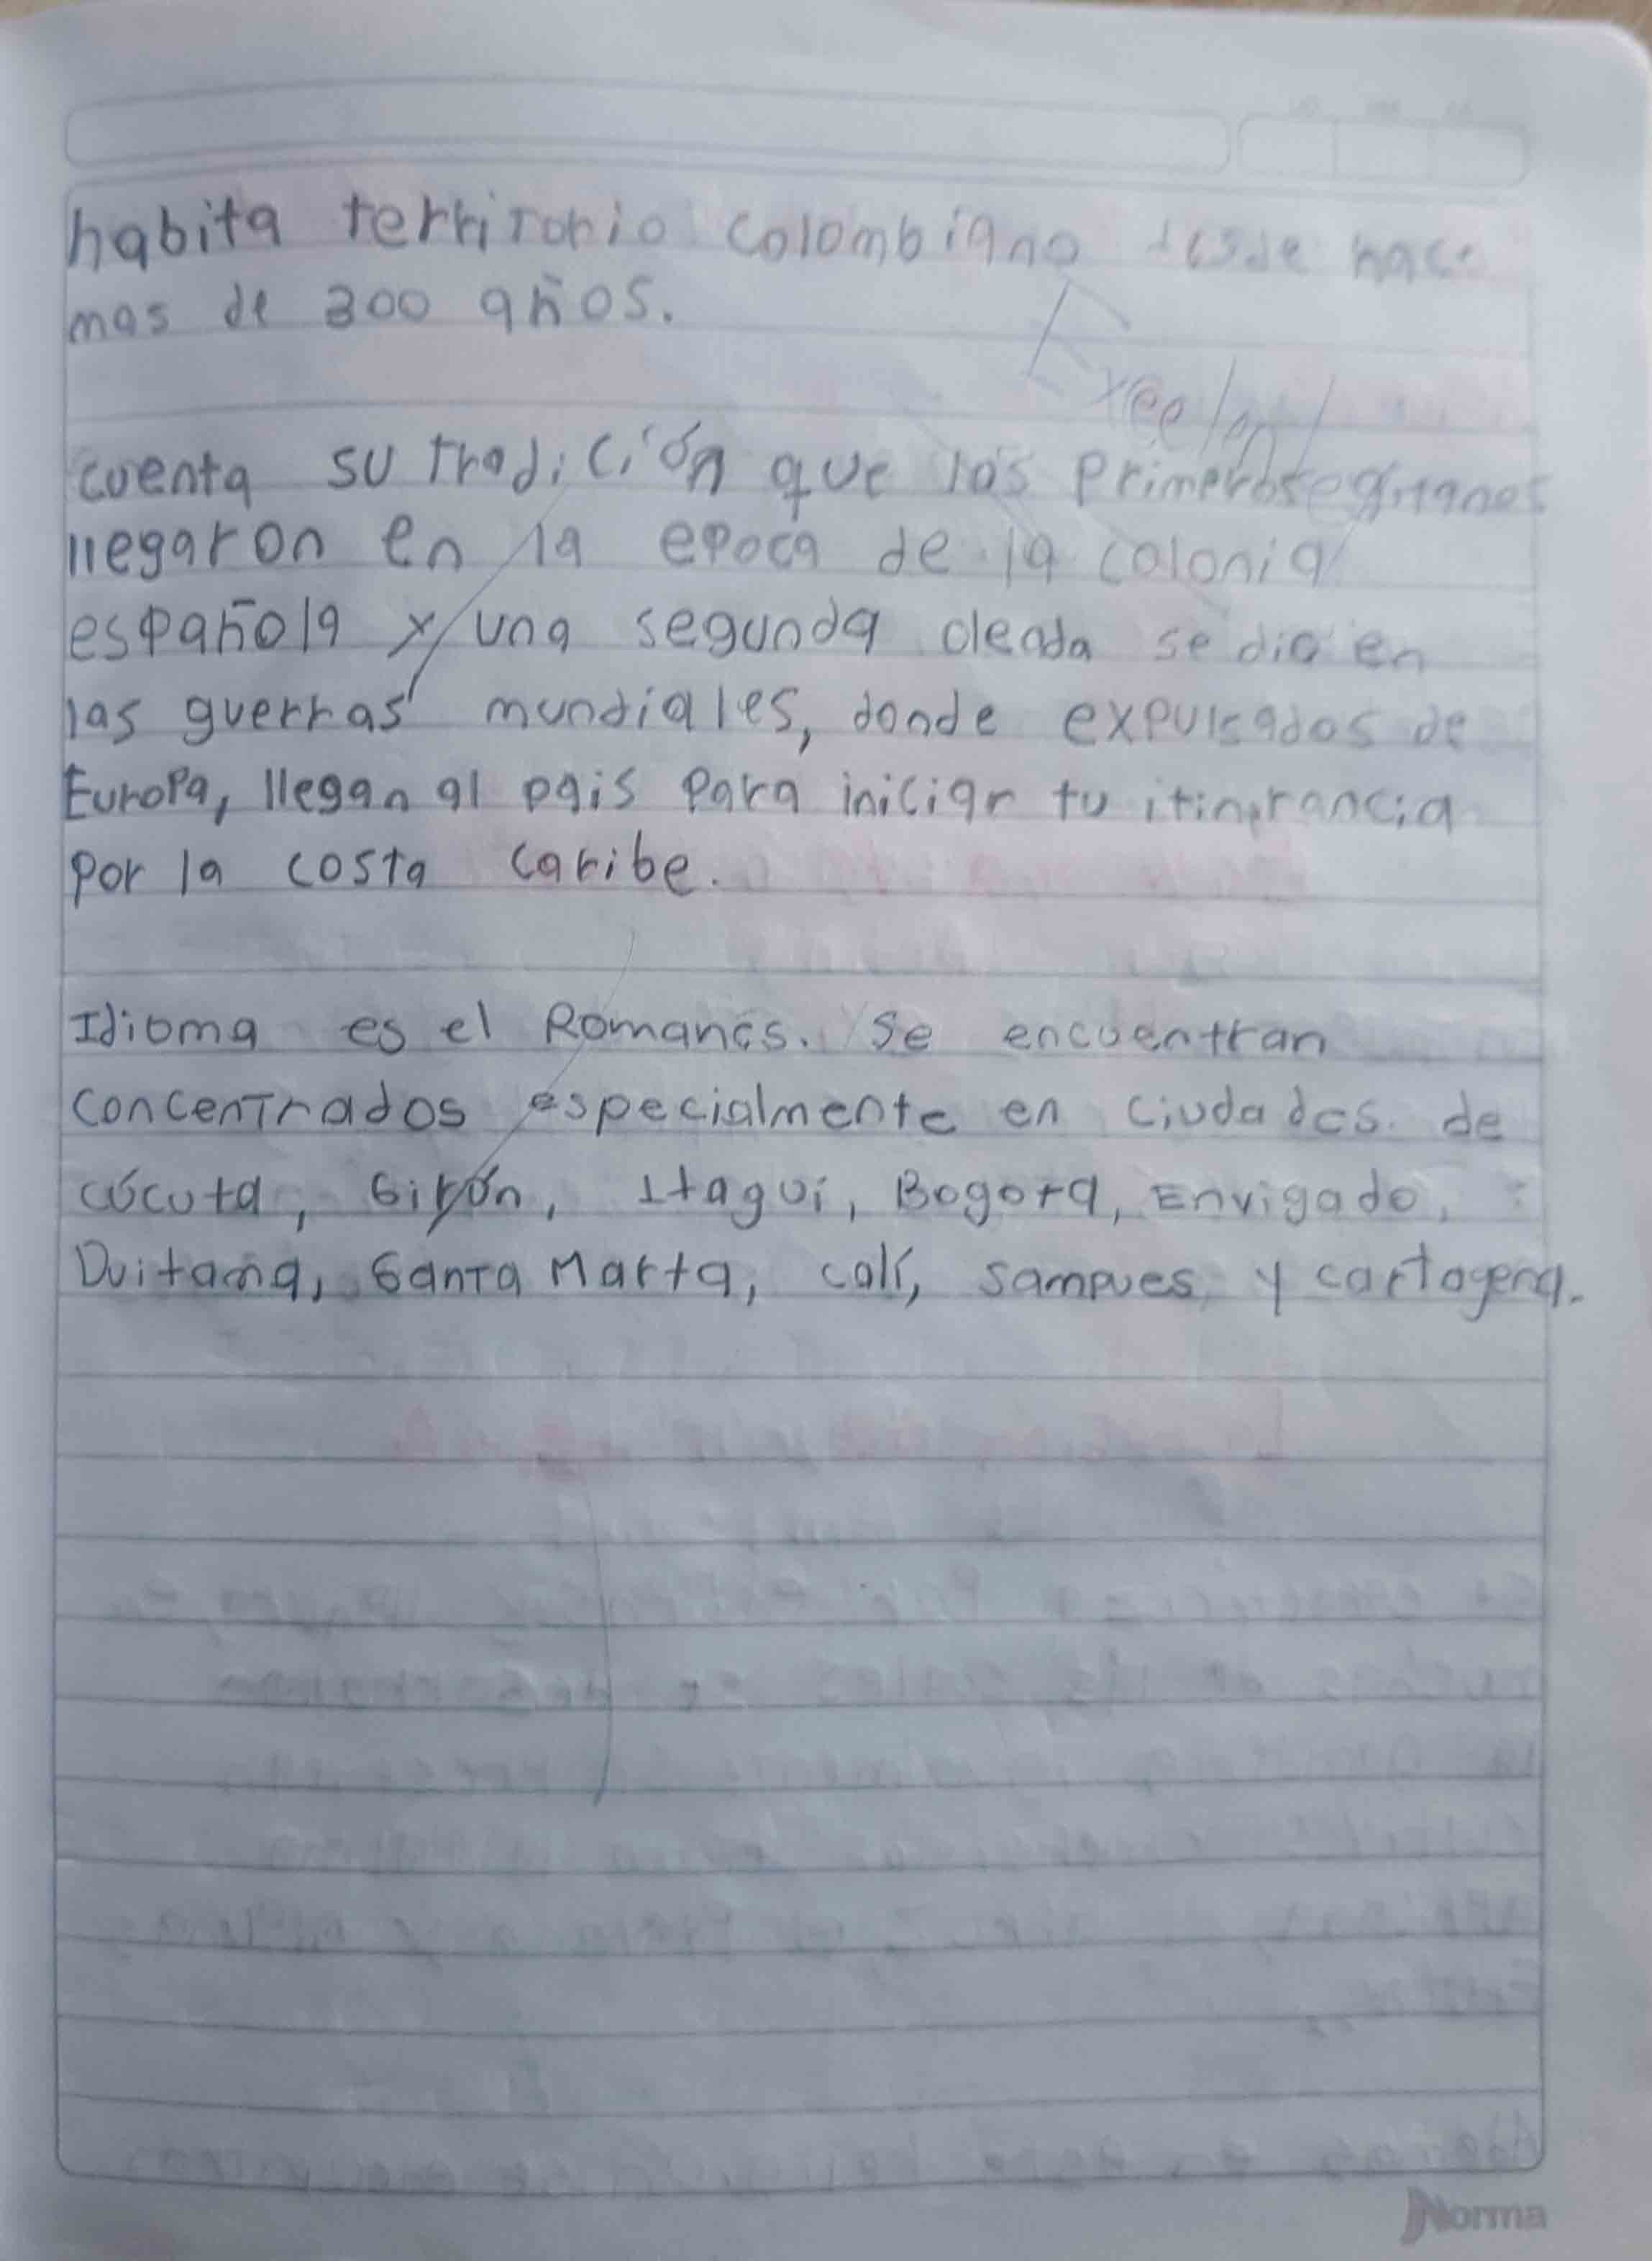 habita territorio colombiano desde hace
mas de 300 años.
Excelente
cuenta su tradición que los primeros gitanos
llegaron en la epoca de la colonia
española y una segunda oleada se dio en
las guerras mundiales, donde expulsados de
Europa, llegan al pais para iniciar tu itinerancia
por la costa caribe.
Idioma es el Romanes. Se encuentran
concentrados especialmente en ciudades de
cúcuta, Girón, Itagui, Bogota, Envigado,
Duitama, Santa Marta, cali, sampues y cartagena.
Norma